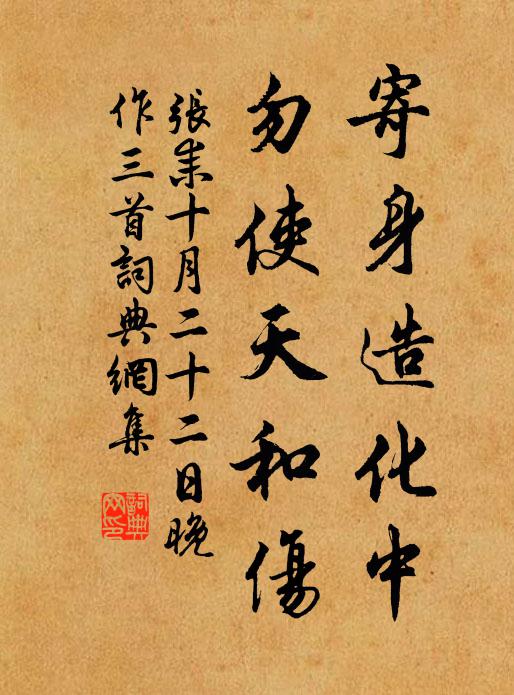 寄身造化中
勿使天和傷
張耒十月二十二日晚
作三首詞典網集
詞典
网印